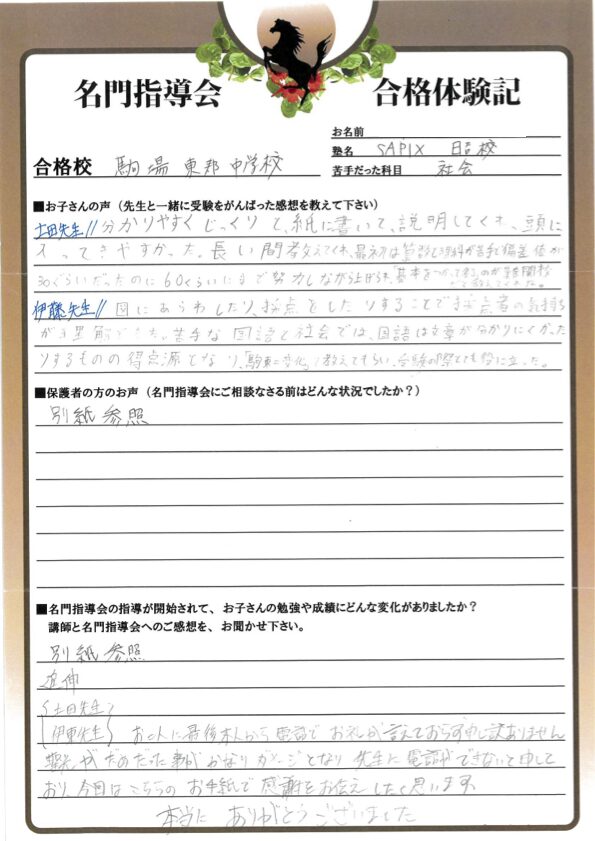 名門指導会 合格体験記
お名前
合格校 駒場東邦中学校
塾名 SAPIX 日吉校
苦手だった科目 社会
■お子さんの声（先生と一緒に受験をがんばった感想を教えて下さい）
土田先生// 分かりやすくじっくりと、紙に書いて、説明してくれ、頭に
入ってきやすかった。長い間教えてくれ、最初は算数と理科が苦手で偏差値が
30ぐらいだったのに60くらいにまで努力しながら上げられ、基本をつかって考えるのが難関校
と教えてくれた。
伊藤先生// 図にあらわしたり、採点をしたりすることで採点者の気持ち
が理解できた。苦手な国語と社会では、国語は文章が分かりにくかった
りするものの得点源となり、駒東に変化して教えてもらい、受験の際とても役に立った。
■保護者の方のお声（名門指導会にご相談なさる前はどんな状況でしたか？）
別紙参照
■名門指導会の指導が開始されて、お子さんの勉強や成績にどんな変化がありましたか？
講師と名門指導会へのご感想を、お聞かせ下さい。
別紙参照
追伸
土田先生
伊東先生 お二人に最後本人から電話でお礼が言えておらず申し訳ありません
がだめだった事がかなりダメージとなり先生に電話ができないと申して
おり、今回はこちらのお手紙で感謝をお伝えしたく思います。
本当にありがとうございました